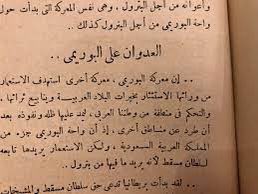 وأعوانه من أجل البترول ، وهى نفس المعركة التى بدأت حول
واحة البوريمى من أجل البترول كذلك ..
العدوان على البوريمى ..
.. إن معركة البوريمى ، معركة أخرى استهدف الاستعمار
من ورائها الاستئثار بخيرات البلاد العربية وينابيع ثرائها ،
والتحكم فى منطقة من وطننا العربى ، ليمد عليها ظله ونفوذه بعد
أن طرد عن مناطق أخرى .. إذ أن واحة البوريمى جزء من
المملكة العربية السعودية ، ولكن الاستعمار يريدها تابعة
لسلطان مسقط لأنه يريد ما فيها من بترول ..
.. لقد بدأت بريطانيا تدعى حق سلطان مسقط والمشيخات